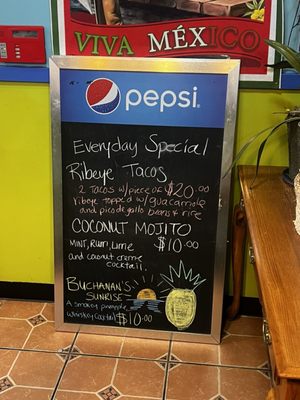 VIVA MÉXICO
pepsi
Everyday Special
Ribeye Tacos
2 Tacos w/piece of $20.00
ribeye topped w/guacamole
and pico de gallo beans & rice
COCONUT MOJITO
MINT, Rum, Lime $10.00
and coconut creme
cocktail.
BUCHANAN'S
SUNRISE -
A smokey pineapple
Whiskey Cocktail $10.00